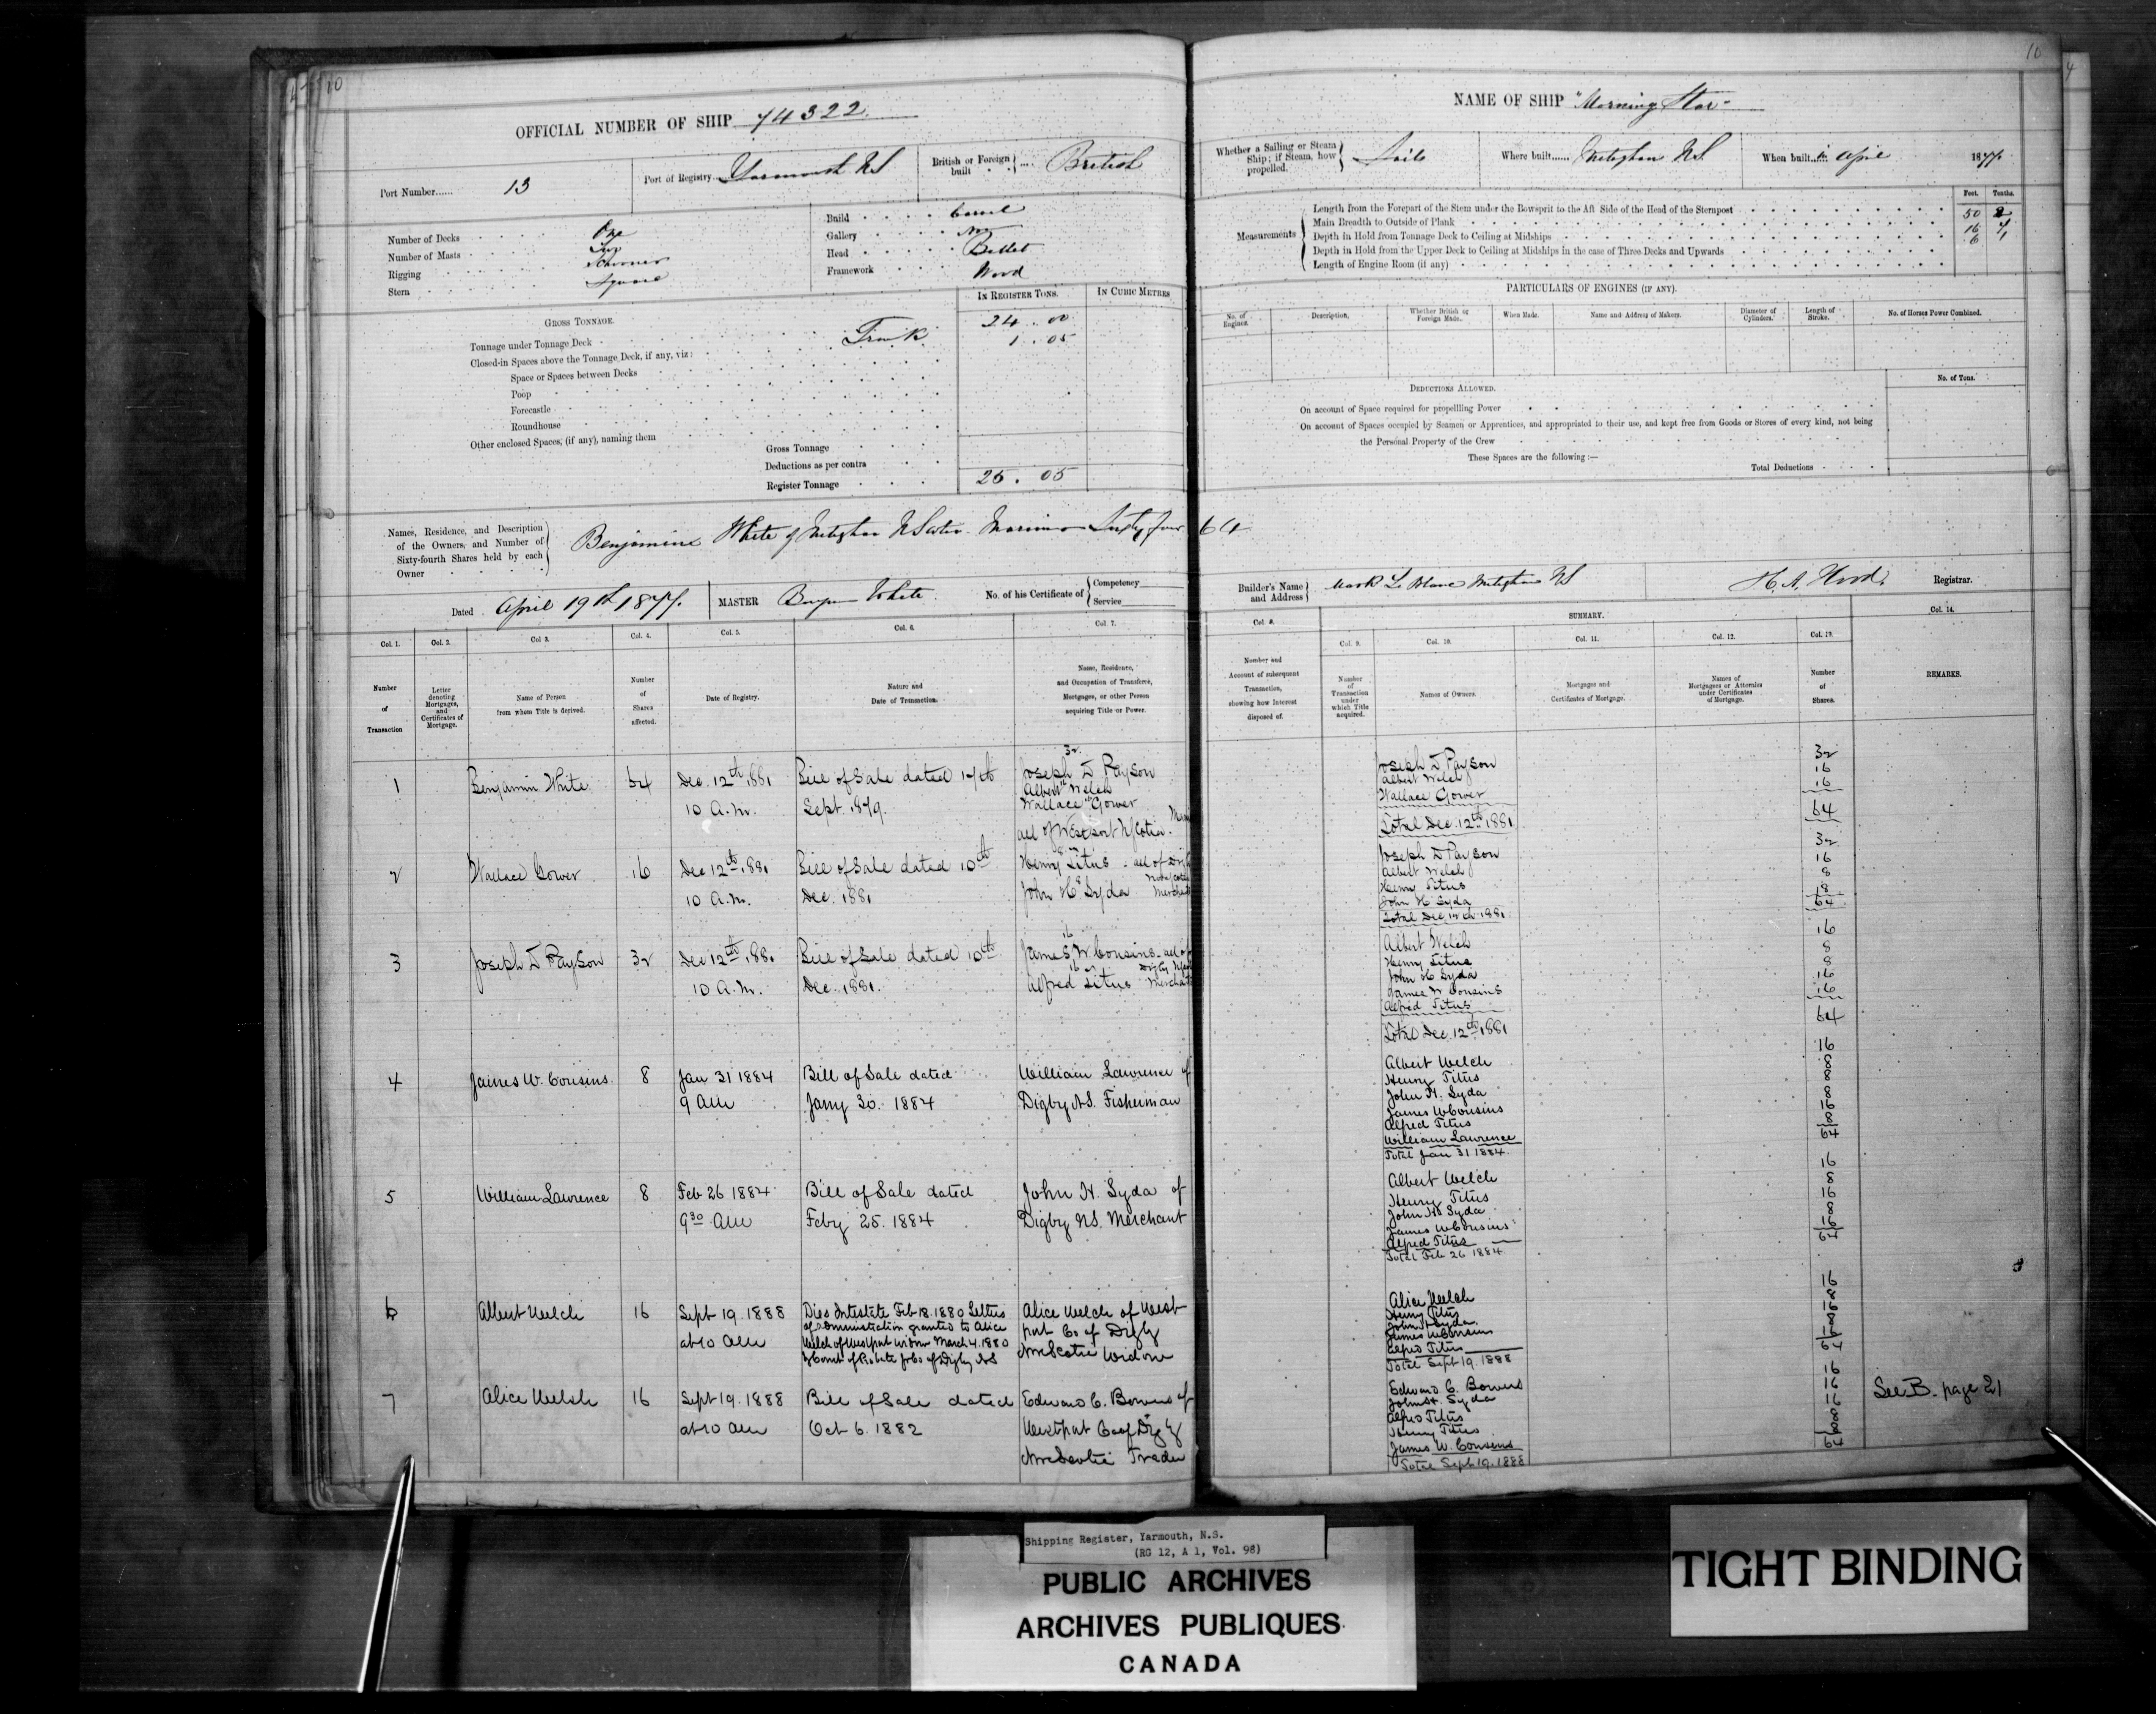 10
OFFICIAL NUMBER OF SHIP 74322.
Port Number...... 13
Port of Registry... Yarmouth NS
British or Foreign built ... British
Number of Decks One
Number of Masts Two
Rigging Schooner
Stern Square
Build Carvel
Gallery No
Head Billet
Framework Wood
IN REGISTER TONS.
IN CUBIC METRES
GROSS TONNAGE.
Tonnage under Tonnage Deck 24.00
Closed-in Spaces above the Tonnage Deck, if any, viz: 1.05
Space or Spaces between Decks
Poop
Forecastle
Roundhouse
Other enclosed Spaces, (if any), naming them
Gross Tonnage
Deductions as per contra
Register Tonnage 25.05
Names, Residence, and Description of the Owners, and Number of Sixty-fourth Shares held by each Owner
Benjamine White of Meteghan N Scotia Mariner Sixty four 64
Dated April 19th 1877.
MASTER Benjn White
No. of his Certificate of Competency Service
Col. 1. Col. 2. Col 3. Col. 4. Col. 5. Col. 6. Col. 7.
Number of Transaction
Letter denoting Mortgages, and Certificates of Mortgage.
Name of Person from whom Title is derived.
Number of Shares affected.
Date of Registry.
Nature and Date of Transaction.
Name, Residence, and Occupation of Transferee, Mortgagee, or other Person acquiring Title or Power.
1 Benjamin White 64 Dec. 12th 1881 10 A.M. Bill of Sale dated 17th Sept. 1879.
32
Joseph D Payson
Albert Welch
Wallace Gower
all of Westport N Scotia.
2 Wallace Gower 16 Dec 12th 1881 10 A.M. Bill of Sale dated 10th Dec. 1881
Henry Titus - all of
John H Syda
3 Joseph D Payson 32 Dec 12th 1881 10 A.M. Bill of Sale dated 10th Dec. 1881.
James W. Cousins - all of
Alfred Titus
4 James W. Cousins 8 Jan 31 1884 9 am Bill of Sale dated Jany 30. 1884
William Lawrence of
Digby NS. Fisherman
5 William Lawrence 8 Feb 26 1884 9 30 am Bill of Sale dated Feby 25. 1884
John H. Syda of
Digby NS. Merchant
6 Albert Welch 16 Sept 19. 1888 at 10 am
Died Intestate Feb 18. 1880 Letters
of administration granted to Alice
Welch of Westport widow March 4. 1880
Alice Welch of West
port Co of Digby
Nova Scotia Widow
7 Alice Welsh 16 Sept 19. 1888 at 10 am Bill of Sale dated Oct 6. 1882
Edward C. Bowers of
Westport Co of Digby
Nova Scotia Trader
10
4
NAME OF SHIP "Morning Star"
Whether a Sailing or Steam Ship; if Steam, how propelled. Sails
Where built...... Meteghan N.S.
When built... in April 1877
Feet. Tenths.
Measurements
Length from the Forepart of the Stem under the Bowsprit to the Aft Side of the Head of the Sternpost 50 2
Main Breadth to Outside of Plank 16 7
Depth in Hold from Tonnage Deck to Ceiling at Midships 6 1
Depth in Hold from the Upper Deck to Ceiling at Midships in the case of Three Decks and Upwards
Length of Engine Room (if any)
PARTICULARS OF ENGINES (IF ANY).
No. of Engines. Description. Whether British or Foreign Made. When Made. Name and Address of Makers. Diameter of Cylinders. Length of Stroke. No. of Horses Power Combined.
DEDUCTIONS ALLOWED.
No. of Tons.
On account of Space required for propellling Power
On account of Spaces occupied by Seamen or Apprentices, and appropriated to their use, and kept free from Goods or Stores of every kind, not being
the Personal Property of the Crew
These Spaces are the following :—
Total Deductions
Builder's Name and Address Mark Le Blanc Meteghan NS
H. A. Hood. Registrar.
Col. 8. SUMMARY. Col. 14.
Col. 9. Col. 10. Col. 11. Col. 12. Col. 13.
Number and Account of subsequent Transaction, showing how Interest disposed of.
Number of Transaction under which Title acquired.
Names of Owners.
Mortgages and Certificates of Mortgage.
Names of Mortgagees or Attornies under Certificates of Mortgage.
Number of Shares.
REMARKS.
Joseph D Payson 32
Albert Welch 16
Wallace Gower 16
Total Dec. 12th 1881 64
Joseph D Payson 32
Albert Welch 16
Henry Titus 8
John H Syda 8
Total Dec 12th 1881 64
Albert Welch 16
Henry Titus 8
John H Syda 8
James W Cousins 16
Alfred Titus 16
Total Dec 12th 1881 64
Albert Welch 16
Henry Titus 8
John H. Syda 8
James W Cousins 8
Alfred Titus 16
William Lawrence 8
Total Jan 31 1884. 64
Albert Welch 16
Henry Titus 8
John H Syda 16
James W Cousins 8
Alfred Titus 16
Total Feb 26 1884. 64
Alice Welch 16
Henry Titus 8
John H Syda 16
James W Cousins 8
Alfred Titus 16
Total Sept 19. 1888 64
Edward C. Bowers 16
John H. Syda 16
Alfred Titus 16
Henry Titus 8
James W. Cousins 8
Total Sept 19. 1888 64
See B. page 21
Shipping Register, Yarmouth, N.S.
(RG 12, A 1, Vol. 98)
PUBLIC ARCHIVES
ARCHIVES PUBLIQUES
CANADA
TIGHT BINDING